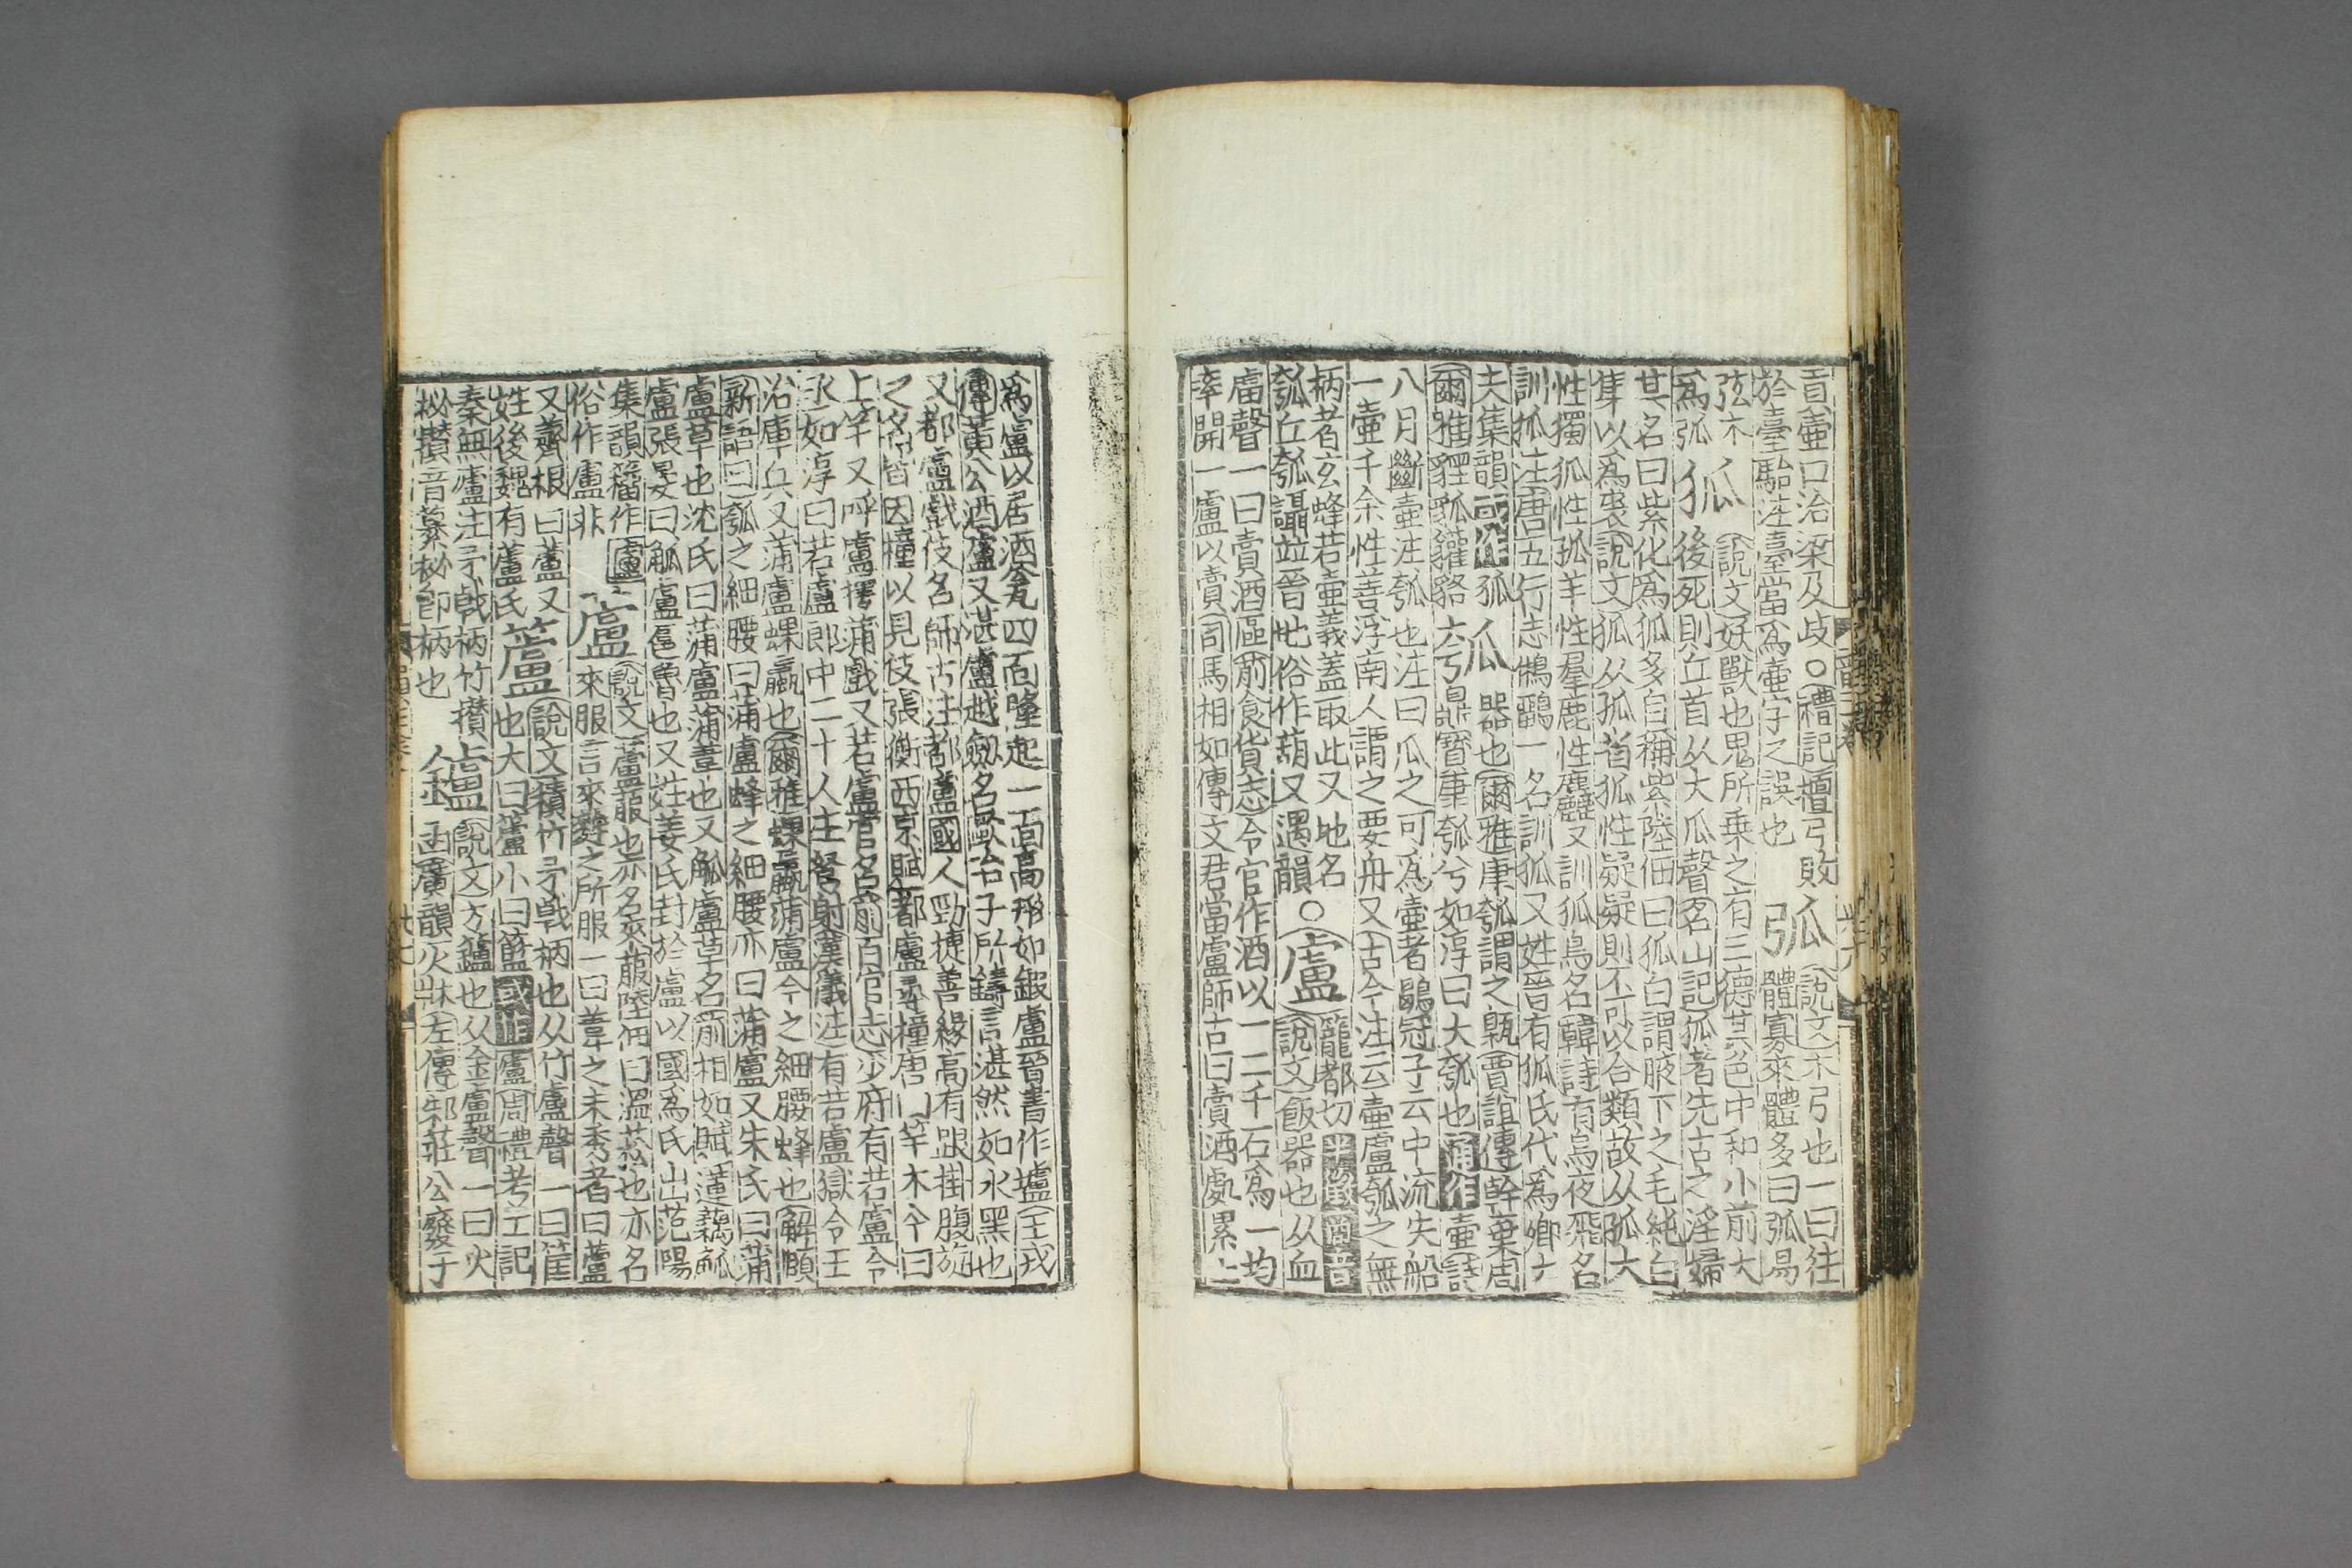 貢壷口治梁及歧○禮記檀弓敗
於臺駘注臺當爲壷字之誤也
弧說文木弓也一曰往體寡來體多曰弧易
弦木爲弧
狐說文妖獸也鬼所乗之有三德其色中和小前大
後死則丘首从犬瓜聲名山記狐者先古之淫婦
其名曰紫化爲狐多自稱紫陸佃曰狐白謂腋下之毛純白
集以爲裘說文狐从孤省狐性疑疑則不可以合類故从孤犬
性獨狐性孤羊性羣鹿性麤又訓狐鳥名韓詩有鳥夜飛名
訓狐注唐五行志鵂鶹一名訓狐又姓晉有狐氏代爲卿大
夫集韻或作狐
瓜器也爾雅康瓠謂之甈賈誼傳幹棄周
鼎寶康瓠兮如淳曰大瓠也通作壷詩
爾雅貍狐貒貈
八月斷壷注瓠也注曰瓜之可爲壷者鶡冠子云中流失船
一壷千金性善浮南人謂之要舟又古今注云壷盧瓠之無
柄者玄蜂若壷義蓋取此又地名
瓠丘瓠讘並晉地俗作葫又遇韻○
盧籠都切半徵商音說文飯器也从血
虍聲一曰賣酒區前食貨志令官作酒以二千石爲一均
率開一盧以賣司馬相如傳文君當盧師古曰賣酒處累土
爲盧以居酒瓮四面隆起一面高形如鍛盧晉書作壚王戎
傳黃公酒盧又湛盧越劒名歐冶子所鑄言湛然如水黑也
又都盧戲伎名師古注都盧國人勁捷善緣高有跟挂腹旋
之名皆因橦以見伎張衡西京賦都盧尋橦唐曰竿木今曰
上竿又呼盧摴蒲戲又若盧官名前百官志少府有若盧令
丞如淳曰若盧郎中二十人主弩射漢儀注有若盧獄令主
治庫兵又蒲盧蜾蠃也爾雅蜾蠃蒲盧今之細腰蜂也解頤
新語曰瓠之細腰曰蒲盧蜂之細腰亦曰蒲盧又朱氏曰蒲
盧草也沈氏曰蒲盧蒲葦也又觚盧草名前相如賦蓮藕觚
盧張晏曰觚盧扈魯也又姓姜氏封於盧以國爲氏出范陽
集韻籀作盧
俗作盧非
蘆說文蘆菔也亦名來菔陸佃曰溫菘也亦名
來服言來麰之所服一曰葦之未秀者曰蘆
又薺根曰蘆又
姓後魏有蘆氏
籚說文積竹矛戟柄也从竹盧聲一曰筐
也大曰籚小曰籃或作廬周禮考工記
秦無廬注矛戟柄竹攢
柲攢音纂柲即柄也
鑪說文方鑪也从金盧聲一曰火
函廣韻火牀左傳邾莊公廢于